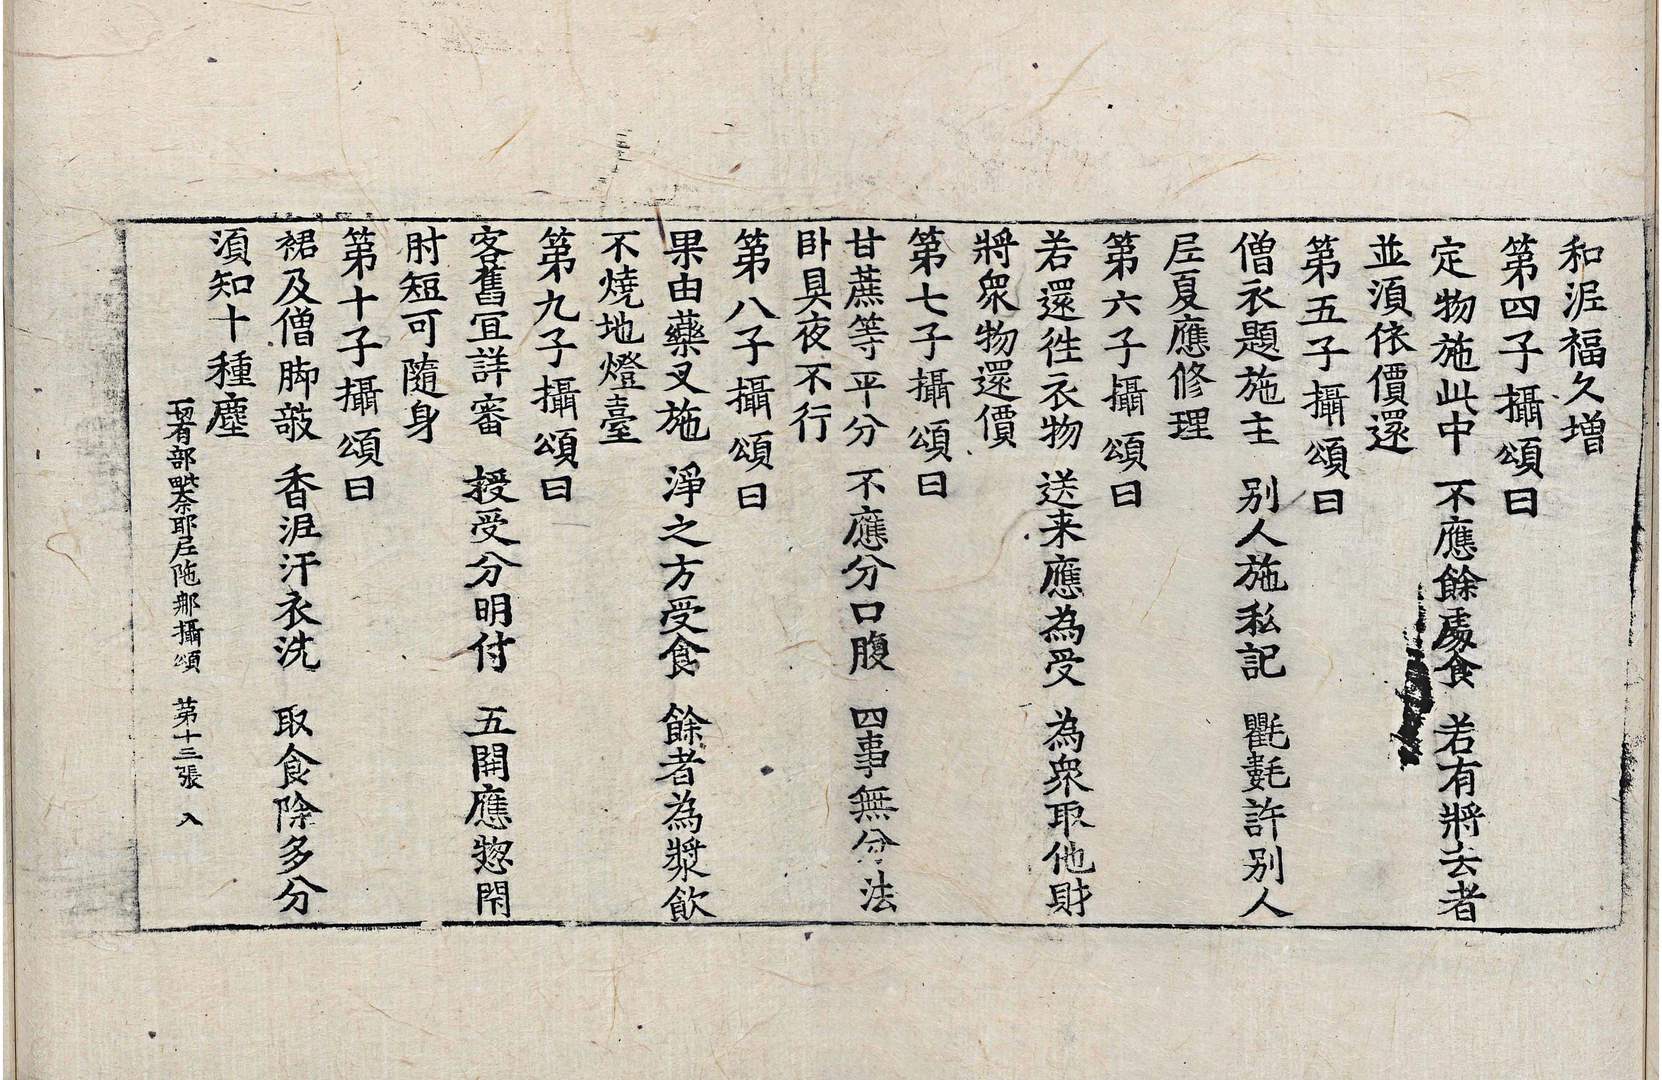 和泥福久增
第四子攝頌曰
定物施此中 不應餘處食 若有將去者
並湏依價還
第五子攝頌曰
僧衣題施主 别人施私記 氍㲣許别人
𡰱夏應修理
第六子攝頌曰
若還徃衣物 送来應為受 為衆取他財
將衆物還價
第七子攝頌曰
甘蔗等平分 不應分口腹 四事無分法
卧具夜不行
第八子攝頌曰
果由藥叉施 淨之方受食 餘者為漿飲
不燒地燈臺
第九子攝頌曰
客舊冝詳審 授受分明付 五開應惣閇
肘短可隨身
第十子攝頌曰
裙及僧脚㪣 香泥汗衣洗 取食除多分
湏知十種塵
一切有部毗奈耶𡰱陁那攝頌 第十三張 入